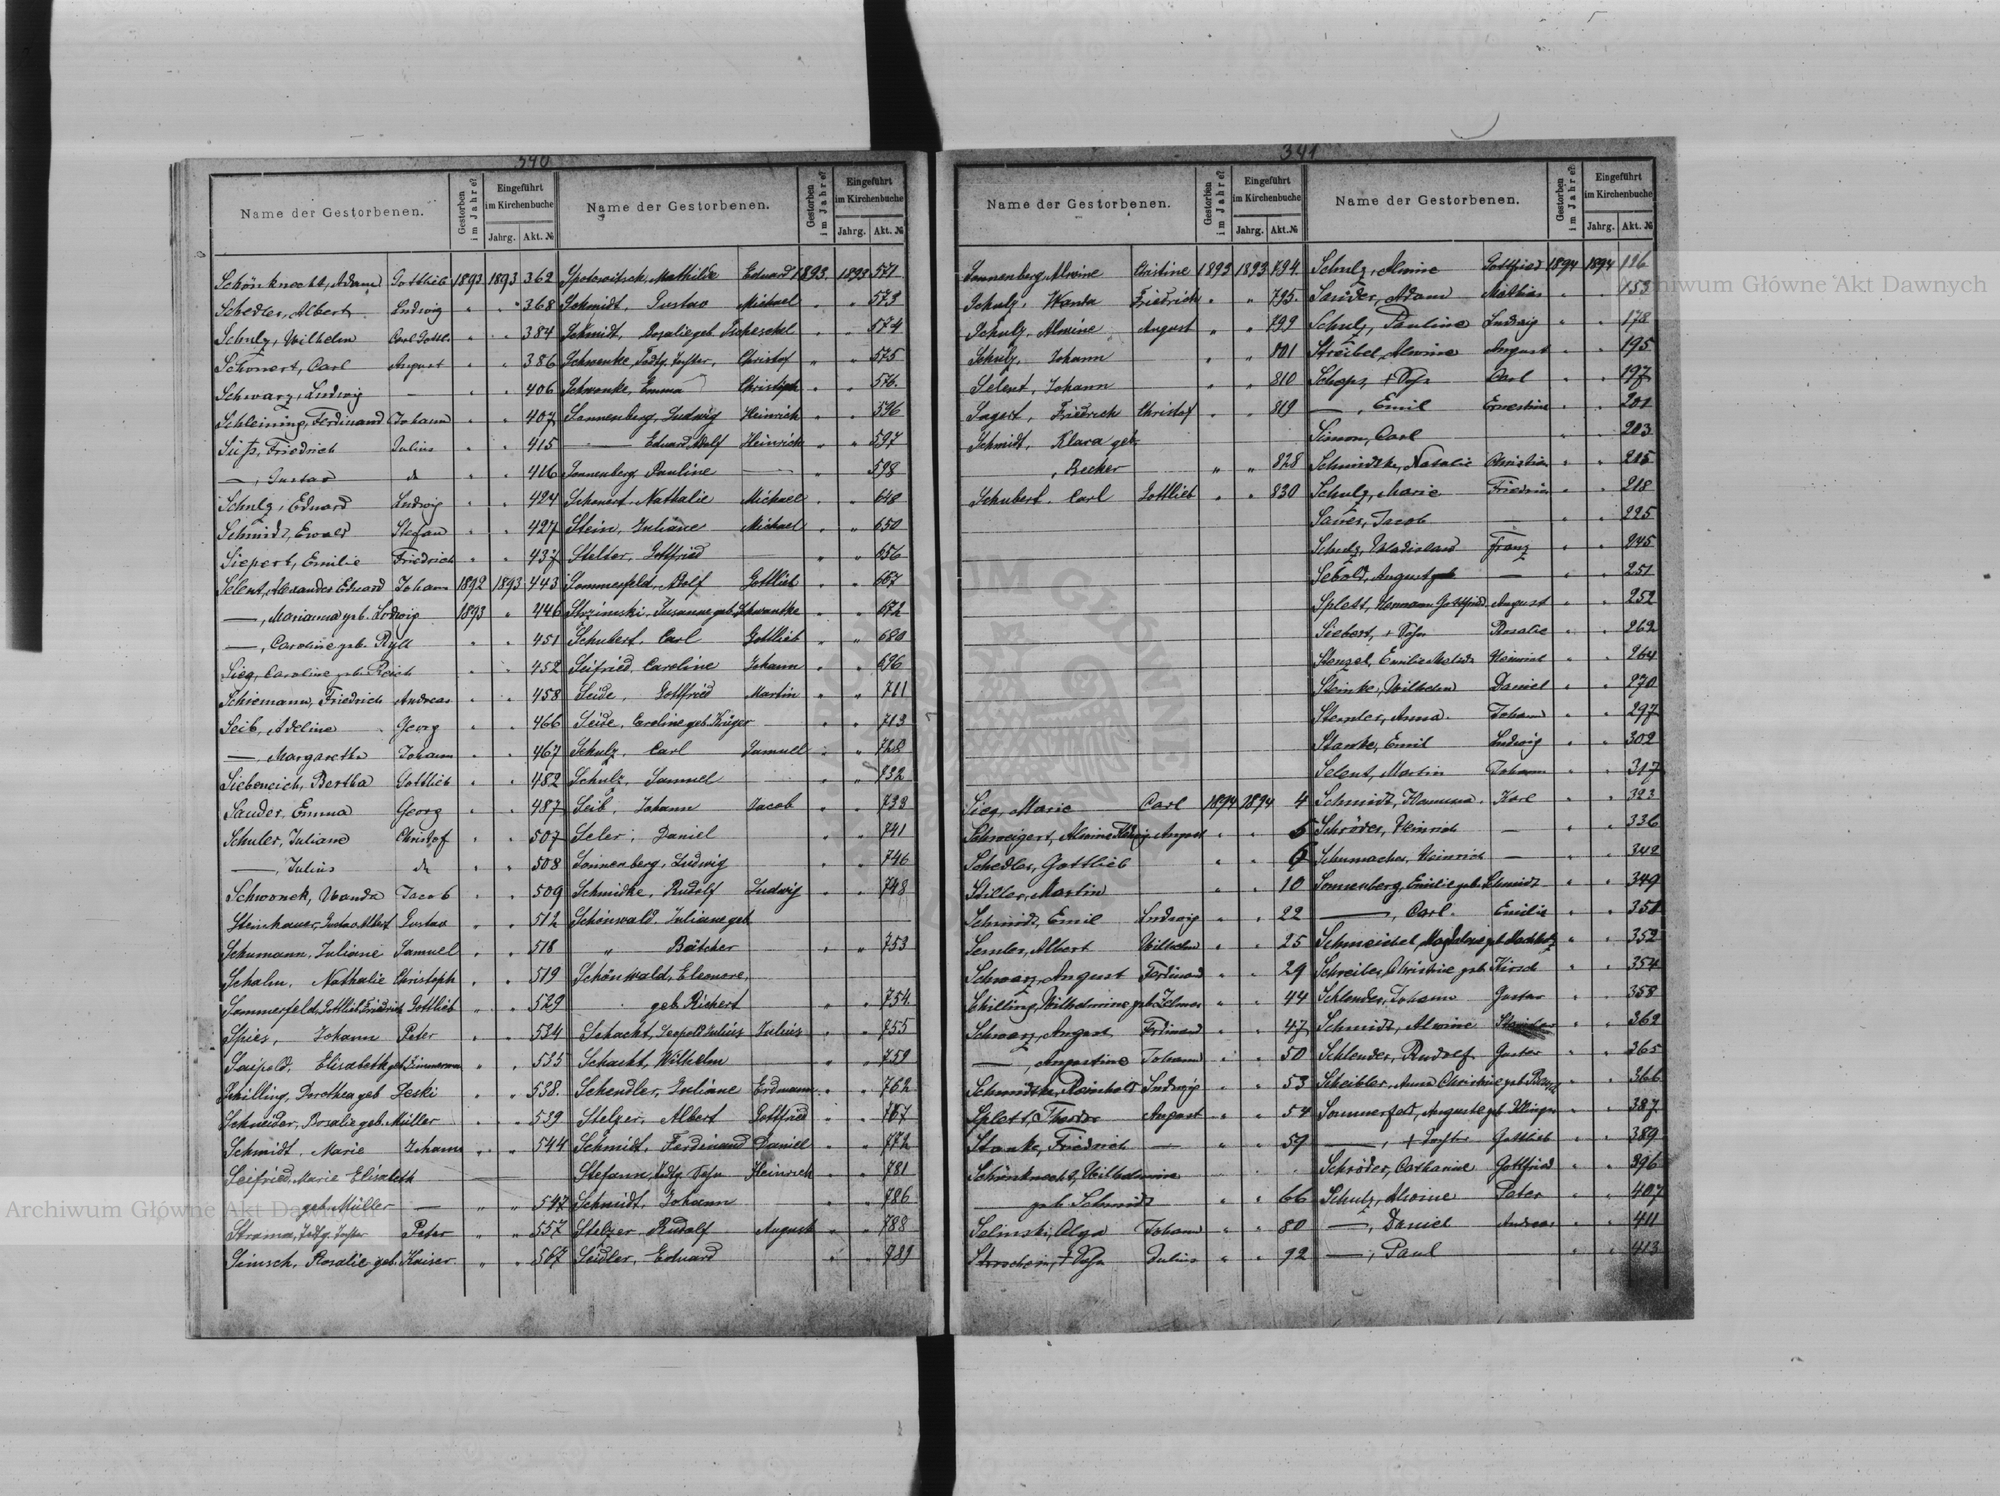 340
Name der Gestorbenen. Gestorben im Jahre? Eingeführt im Kirchenbuche Jahrg. Akt. №
Schönknecht, Adam Gottlieb 1893 1893 362
Schedler, Albert Ludwig " " 368
Schulz, Wilhelm Carl Gottl. " " 384
Schonert, Carl August " " 386
Schwarz, Ludwig — " " 406
Schleining, Ferdinand Johann " " 407
Süß, Friedrich Julius " " 415
—, Gustav do " " 416
Schulz, Eduard Ludwig " " 424
Schmidt, Ewald Stefan " " 427
Siepert, Emilie Friedrich " " 437
Selent, Alexander Eduard Johann 1892 1893 443
—, Marianna geb. Ludwig 1893 " 446
—, Caroline geb. Ryll " " 451
Sieg, Caroline geb. Reich " " 452
Schiemann, Friedrich Andreas " " 458
Seib, Adeline Georg " " 466
—, Margaretha Johann " " 467
Siebeneich, Bertha Gottlieb " " 482
Sauder, Emma Georg " " 487
Schuler, Juliane Christof " " 507
—, Julius do " " 508
Schworck, Wanda Jacob " " 509
Steinhauer, Gustav Albert Gustav " " 512
Schumann, Juliane Samuel " " 518
Schalm, Nathalie Christoph " " 519
Sommerfeld, Gottlieb Friedrich Gottlieb " " 529
Spies, Johann Peter " " 534
Elisabeth geb. Zimmermann " " 535
Schilling, Dorothea geb. Zeski " " 538.
Schneider, Rosalie geb. Müller " " 539
Schmidt, Marie Johann " " 544
Seifried, Marie Elisabeth
geb. Müller — " " 547
Strama, Todtg. Tochter Peter " " 557
Simsch, Rosalie geb. Kaiser " " 567
Name der Gestorbenen. Gestorben im Jahre? Eingeführt im Kirchenbuche Jahrg. Akt. №
Mathilde Eduard 1893. 1893 571
Schmidt, Gustav Michael " " 573
Schmidt, Rosalie geb. " " 574
Schwenke, Todtg. Tochter, Christof " " 575
Schwenke, Emma Christoph " " 576.
Sonnenberg, Ludwig Heinrich " " 596
— Eduard Adolf Heinrich " " 597
Sonnenberg, Pauline — " 598
Schonert, Nathalie Michael " " 648
Stein, Juliane Michael " " 650
Stelter, Gottfried — " " 656
Sommerfeld, Adolf Gottlieb " " 667
Susanne geb. Schwantke " " 672
Schubert, Carl Gottlieb " " 680
Seifried, Caroline Johann " " 696
Seide, Gottfried Martin " " 711
Seide, Eveline geb. Krüger " " 713
Schulz, Carl Samuel " " 728
Schulz, Samuel " " 732
Seib, Johann Jacob " " 733
Seler, Daniel " " 741
Sonnenberg, Ludwig " " 746
Schmidke, Rudolf Ludwig " " 748
Schönwald, Juliane geb.
" Bätcher " " 753
Schönwald, Eleonore,
geb. Richert " " 754
Schacht, Leopold Julius Julius " " 755
Schacht, Wilhelm " " 759
Schendler, Juliane Erdmann " " 762
Stelzer, Albert Gottfried " " 767
Schmidt, Ferdinand Daniel " " 772
Stefann, Todtg. Sohn Heinrich " " 781
Schmidt, Johann " " 786
Stelzer, Rudolf August " " 788
Seidler, Eduard " " 789
341
Name der Gestorbenen. Gestorben im Jahre? Eingeführt im Kirchenbuche Jahrg. Akt. №
Sonnenberg, Alwine Christine 1893 1893 794.
Schulz, Wanda Friedrich " " 795.
Schulz, Alwine August " " 799
Schulz, Johann " " 801
Selent, Johann " " 810
Sagert, Friedrich Christof " " 819
Schmidt, Klara geb.
" Becker " " 828
Schubert, Carl Gottlieb " " 830
Sieg, Marie Carl 1894 1894 4
Schweigert, Alwine August " " 5
Schedler, Gottlieb " " 6
Stiller, Martin " " 10
Schmidt, Emil Ludwig " " 22
Semler, Albert Wilhelm " " 25
Schwarz, August Ferdinand " " 29
Schilling, Wilhelmine geb. " " 44
Schwarz, August Ferdinand " " 47
—, Augustine Johann " " 50
Schmidtke, Reinhold Ludwig " " 53
Splett, Theodor August " " 54
Stanke, Friedrich — " " 59
Schönknecht, Wilhelmine
— geb. Schmidt " " 66
Selinski, Olga Johann " " 80
† Sohn Julius " " 92
Name der Gestorbenen. Gestorben im Jahre? Eingeführt im Kirchenbuche Jahrg. Akt. №
Schulz, Alwine Gottfried 1894 1894 126
Sauder, Adam Mathias " " 153
Schulz, Pauline Ludwig " " 178
Streibel, Alwine August " " 195
† Sohn Carl " " 197
—, Emil Ernestine " " 201
Simon, Carl " " 203
Schmidtke, Natalie Christian " " 215
Schulz, Marie Friedrich " " 218
Sauer, Jacob — " " 225
Schulz, Wladislaus Franz " " 245
Sebold, August geb. — " " 251
Splett, Hermann Gottfried August " " 252
Siebert, † Sohn Rosalie " " 262
Stenzel, Emilie Heinrich " " 264
Steinke, Wilhelm Daniel " " 270
Stemler, Anna. Johann " " 297
Stanke, Emil Ludwig " " 302
Selent, Martin Johann " " 317
Schmidt, Karl " " 323
Schröder, Heinrich — " " 336
Schumacher, Heinrich — " " 342
Sonnenberg, Emilie geb. Schmidt " " 349
—, Carl. Emilie " " 351
Schmeichel, Magdalene geb. " " 352
Schreiber, Christine geb. Hirsch " " 354
Schlender, Johann Gustav " " 358
Schmidt, Alwine " " 362
Schlender, Rudolf Gustav " " 365
Scheibler, Anna Christine geb. " " 366
Sommerfeld, Auguste geb. " " 387
—, † Tochter Gottlieb " " 389
Schröder, Catharine Gottfried " " 396
Schulz, Alwine Peter " " 407
—, Daniel Andreas " " 411
—, Paul " " 413
Archiwum Główne Akt Dawnych
Archiwum Główne Akt Dawnych